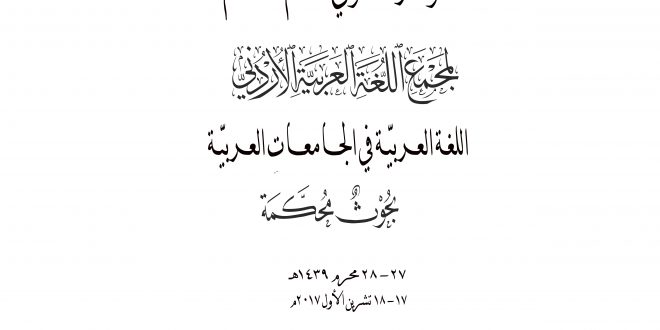 لمجمع اللغة العربية الأردني
اللغة العربيّة في الجامعات العربيّة
بحوثٌ محكّمة
٢٧-٢٨ محرم ١٤٣٩هـ
١٧-١٨ تشرين الأول ٢٠١٧م